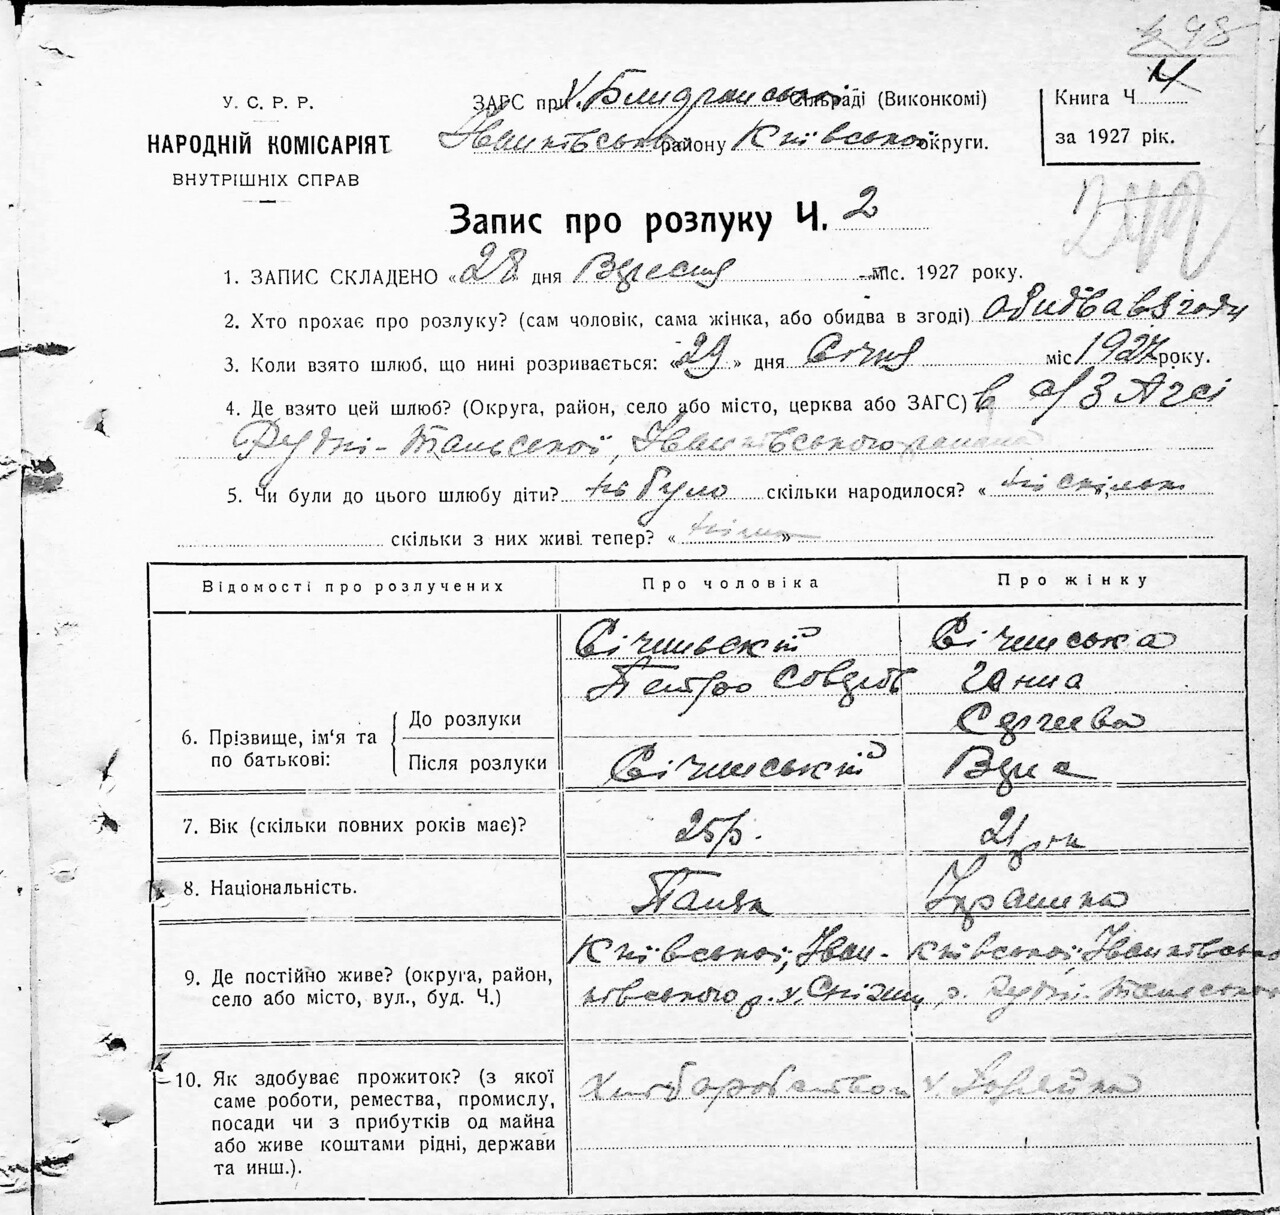 98
У. С. Р. Р.
НАРОДНІЙ КОМІСАРІЯТ
ВНУТРІШНІХ СПРАВ
ЗАГС при Сільраді (Виконкомі)
Іванківського району Київської округи.
Книга Ч.
за 1927 рік.
Запис про розлуку Ч. 2
1. ЗАПИС СКЛАДЕНО «28 дня Вересня міс. 1927 року.
2. Хто прохає про розлуку? (сам чоловік, сама жінка, або обидва в згоді) обидва в згоди
3. Коли взято шлюб, що нині розривається: «29» дня Січня міс 1927 року.
4. Де взято цей шлюб? (Округа, район, село або місто, церква або ЗАГС) в
Рудні-Тальської, Іванківського району
5. Чи були до цього шлюбу діти? не було скільки народилося? « ніскільки
скільки з них живі тепер? « »
Відомості про розлучених
Про чоловіка
Про жінку
6. Прізвище, ім'я та по батькові:
До розлуки
Після розлуки
Січинський
Петро
Січинська
Ганна
Січинський
7. Вік (скільки повних років має)?
25 р.
21 рік
8. Національність.
Поляк
Українка
9. Де постійно живе? (округа, район,
село або місто, вул., буд. Ч.)
Київської, Іван-
ківського р. х.
Київської, Іванківсько
с. Рудні-Тальської
10. Як здобуває прожиток? (з якої
саме роботи, ремества, промислу,
посади чи з прибутків од майна
або живе коштами рідні, держави
та инш.).
Хліборобством